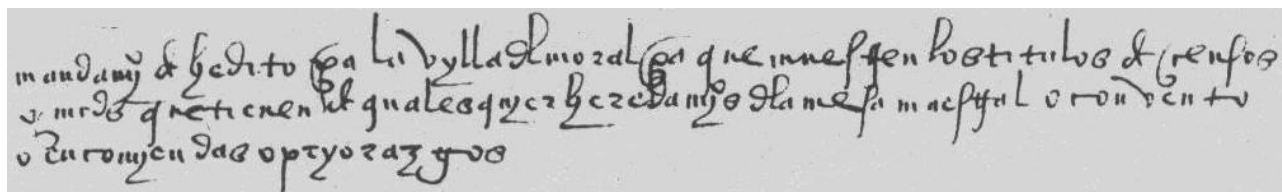 mandamyº de hedito pa la vylla del moral pa que muestren los titulos de censos
o mrds que tienen de qualesqyer heredamyºs de la mesa maestral o convento
o encomyendas o pryorazgos